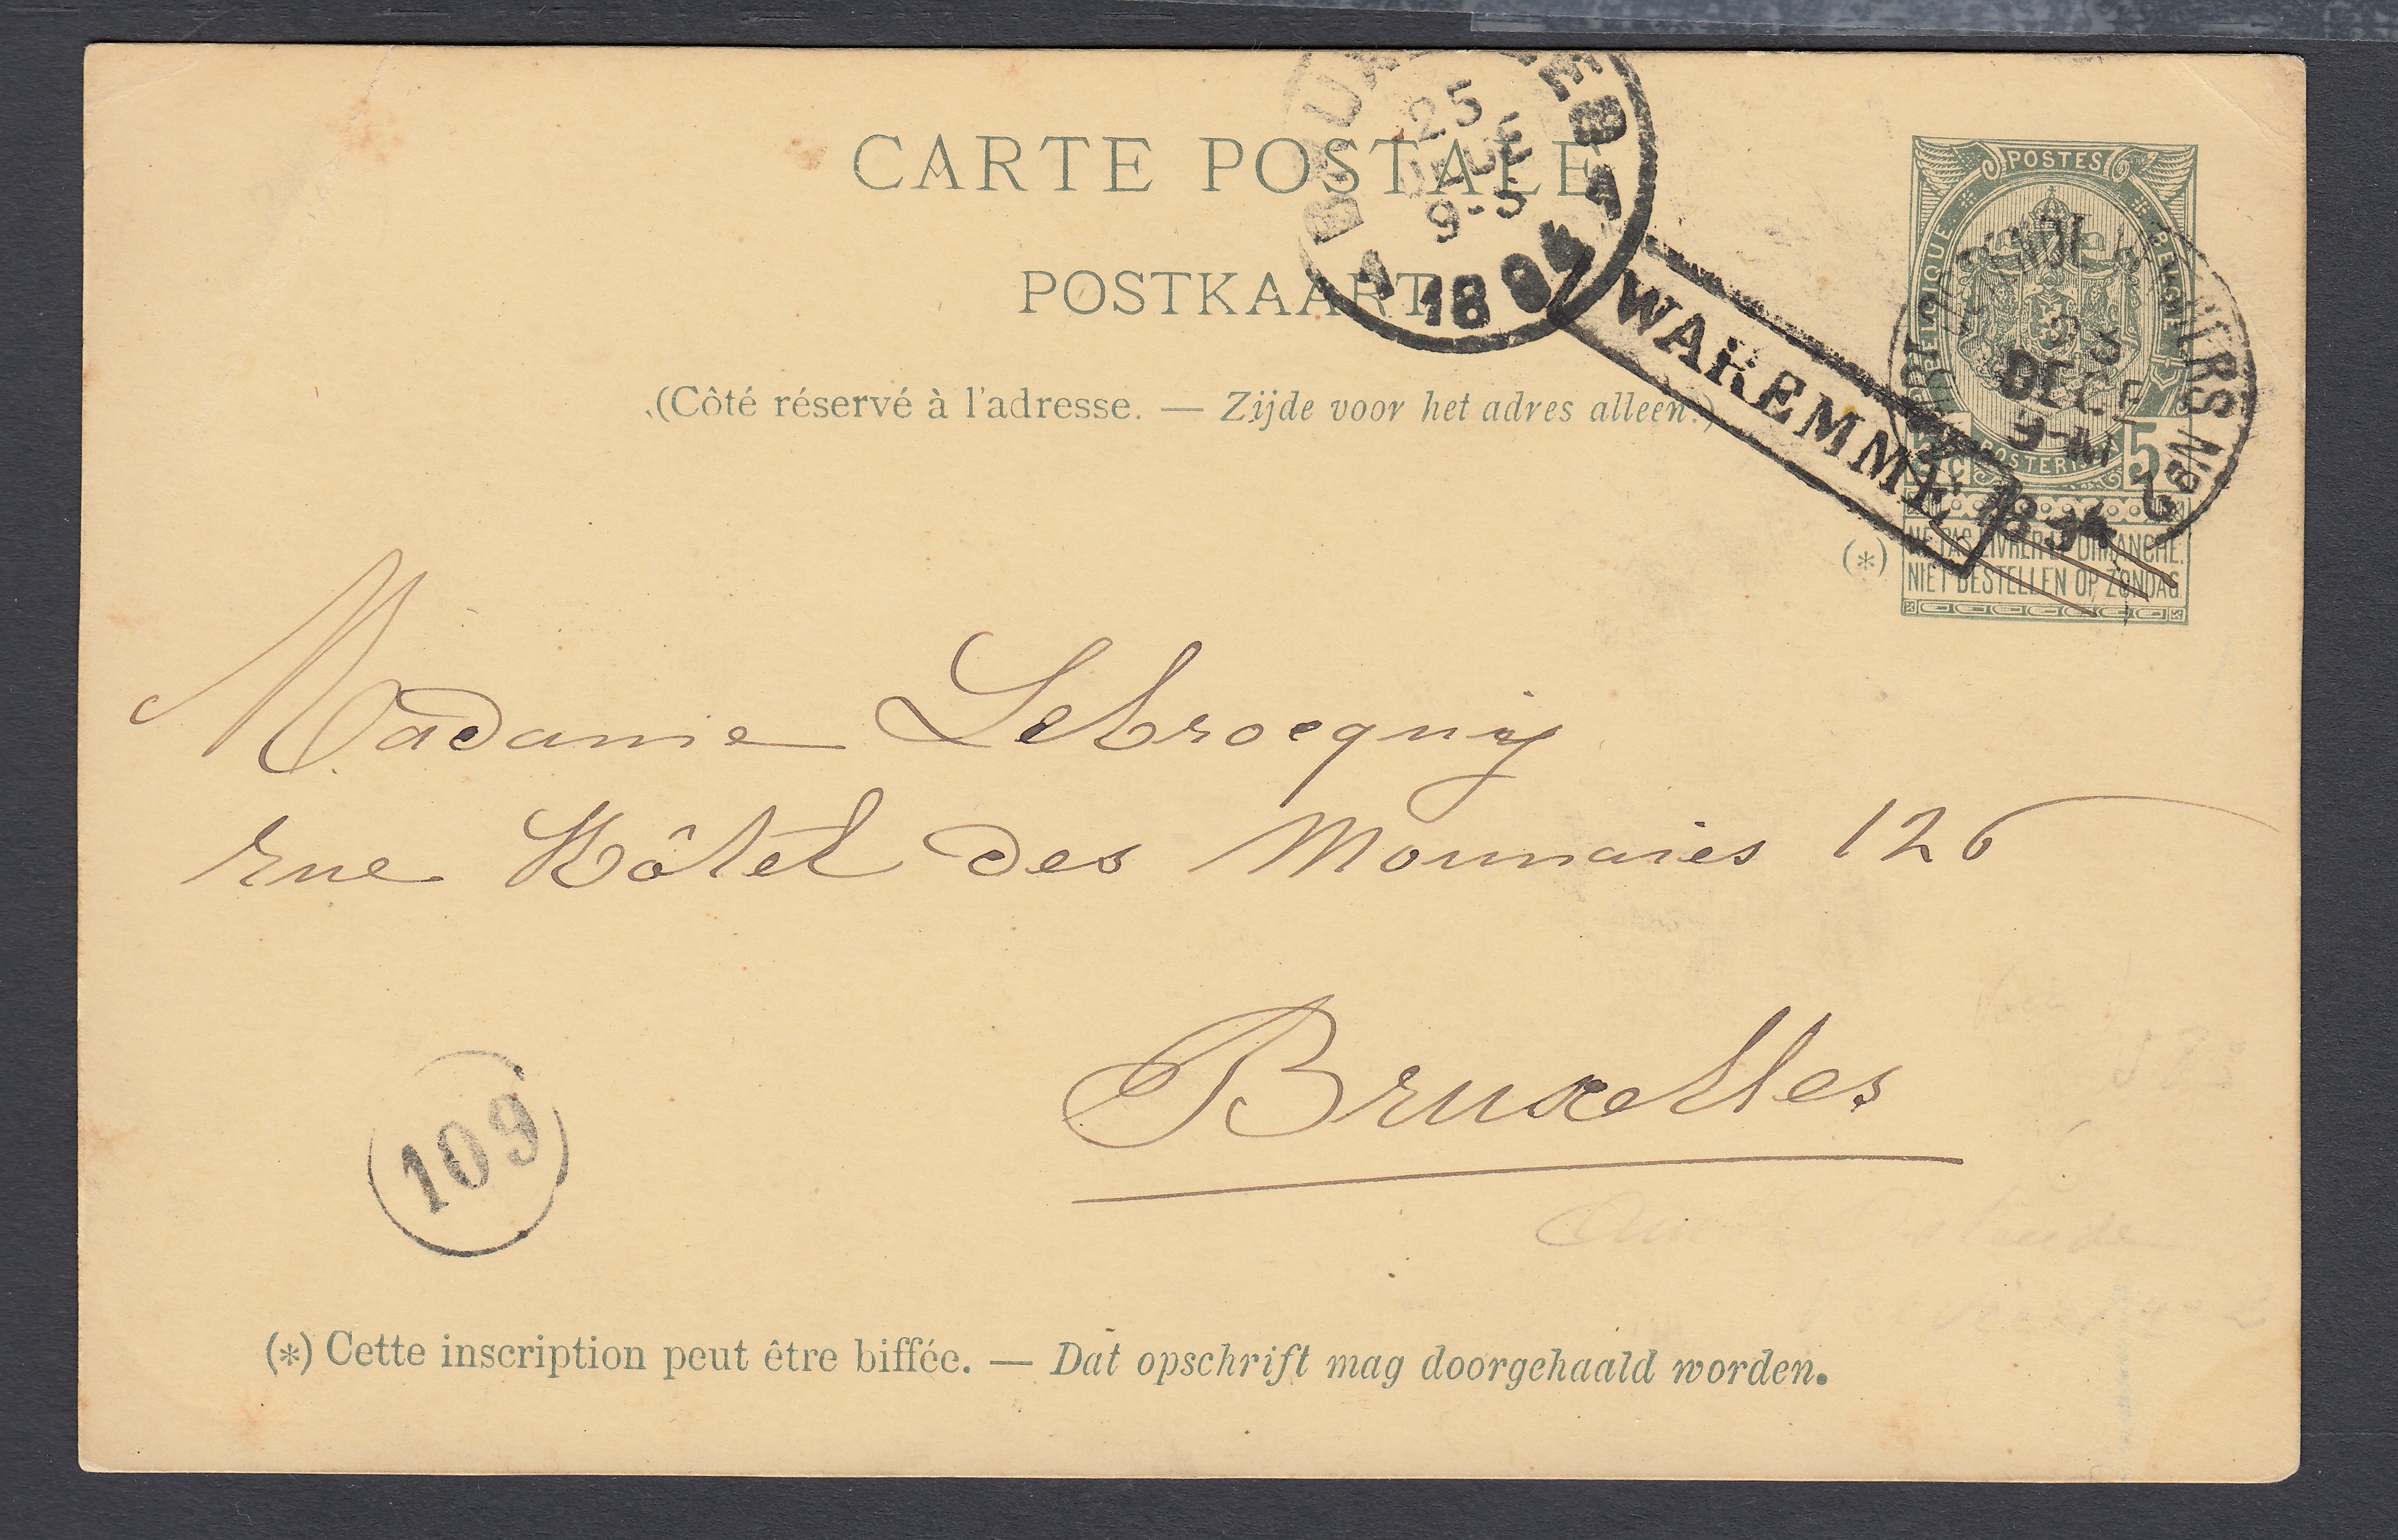 CARTE POSTALE
POSTKAART
(Côté réservé à l'adresse. — Zijde voor het adres alleen.)
POSTES
BELGIQUE
BELGIË
POSTERIJEN
5 C 5
NE PAS LIVRER LE DIMANCHE.
NIET BESTELLEN OP ZONDAG.
25
1894
WAREMME
DECE
1894
(*)
Madame Lebrocquiy
rue Hôtel des Monnaies 126
Bruxelles
109
(*) Cette inscription peut être biffée. — Dat opschrift mag doorgehaald worden.